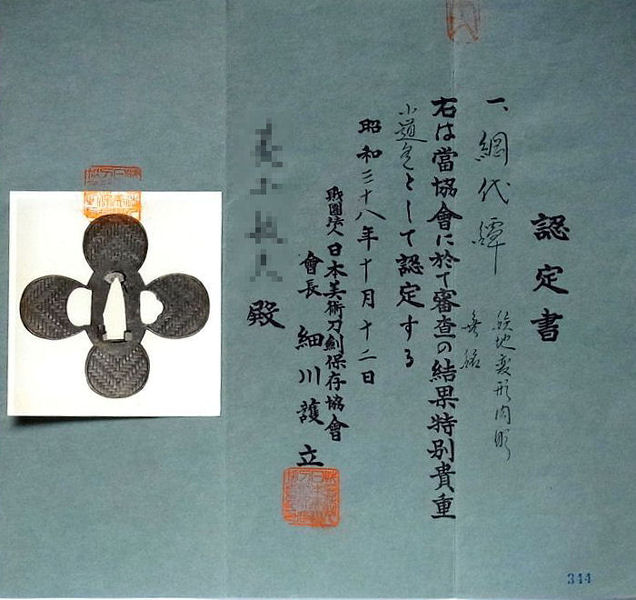 認定書
一、網代鐔
鉄地変形肉彫
無銘
右は當協會に於て審査の結果特別貴重
小道具として認定する
昭和三十八年十月十二日
財團法人日本美術刀劍保存協會
會長 細川護立
殿
344